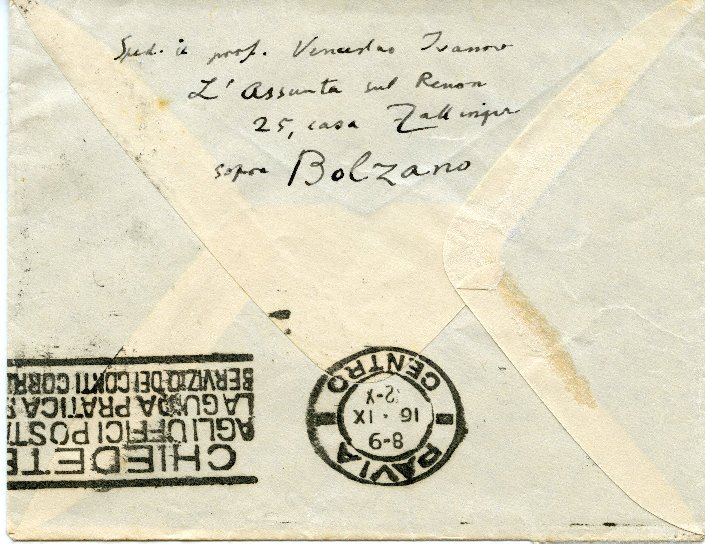 Sped. il prof. Venceslao Ivanov
L'Assunta sul Renon
25, casa Zallinger
sopra Bolzano
CHIEDETE
AGLI UFFICI POSTA
LA GUIDA PRATICA
SERVIZIO DEI CONTI CORR
PAVIA
8-9
16 · IX
CENTRO